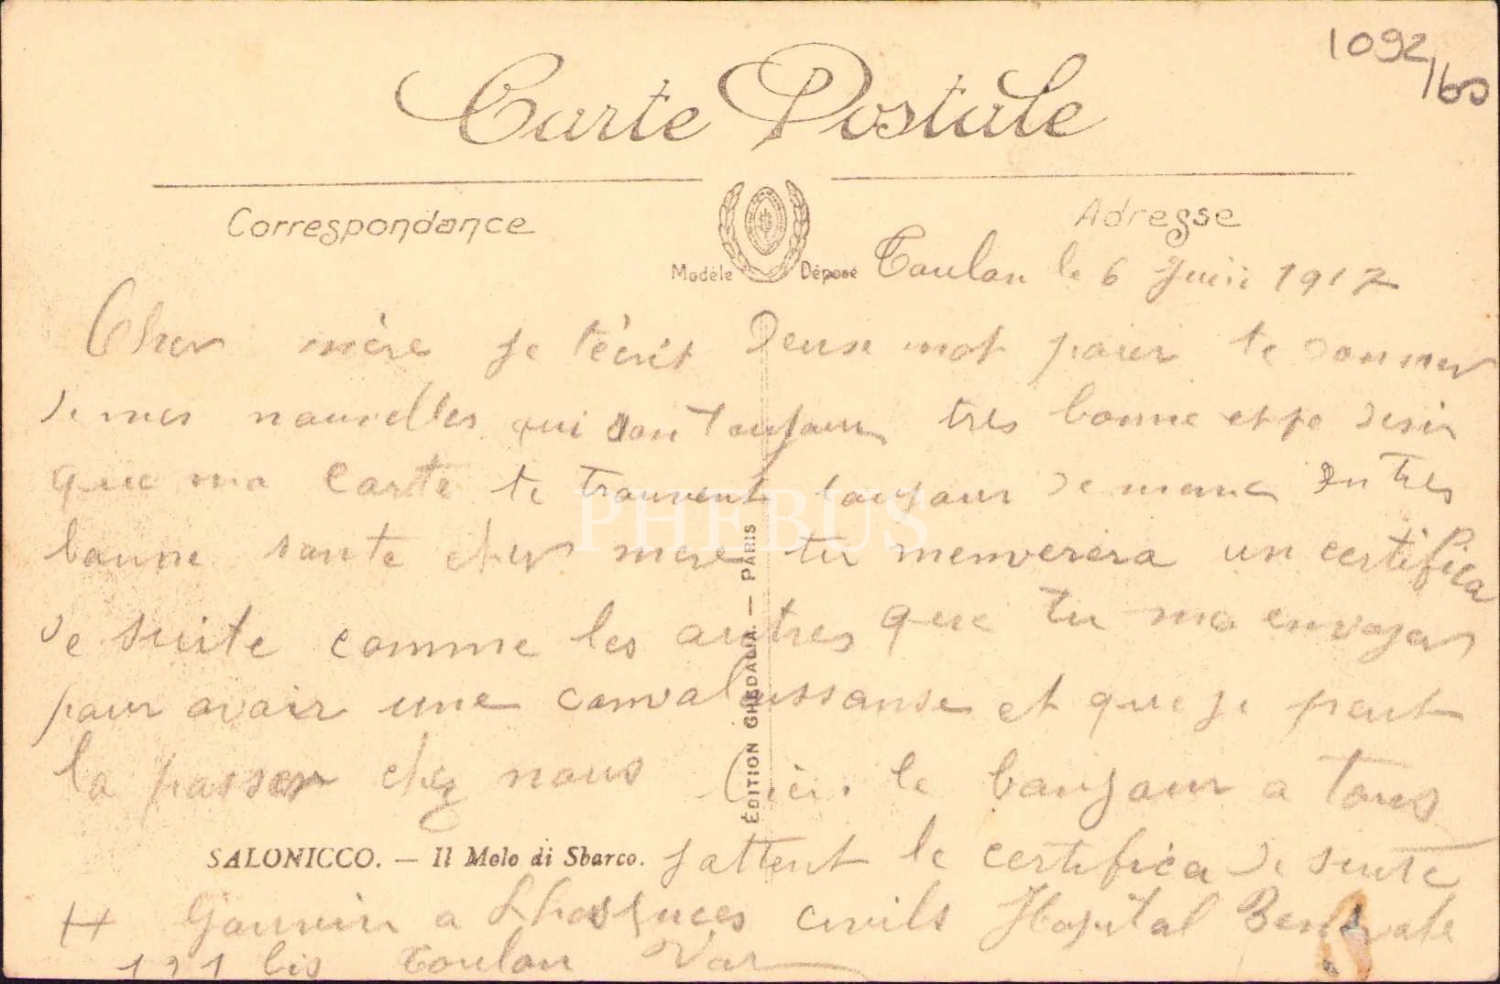 1092/60
Carte Postale
Correspondance
Adresse
Modèle Déposé
Toulon le 6 Juin 1917
Cher mère je técrit Deuse mot pour te donner
de mes nouvelles qui son Toujour très bonne et je desir
que ma carte te trouvent toujour de meme En très
bonne sante cher mere tu menverera un certifica
de suite comme les autres que tu ma envoyer
pour avoir une convalessanse et que je peut
la passer chez nous le bonjour a tous
SALONICCO. — Il Molo di Sbarco.
jattent le certifica de suite
H Gauvin a civils Hopital
121 bis Toulon Var
ÉDITION GHEDALIA. — PARIS
PHEBUS